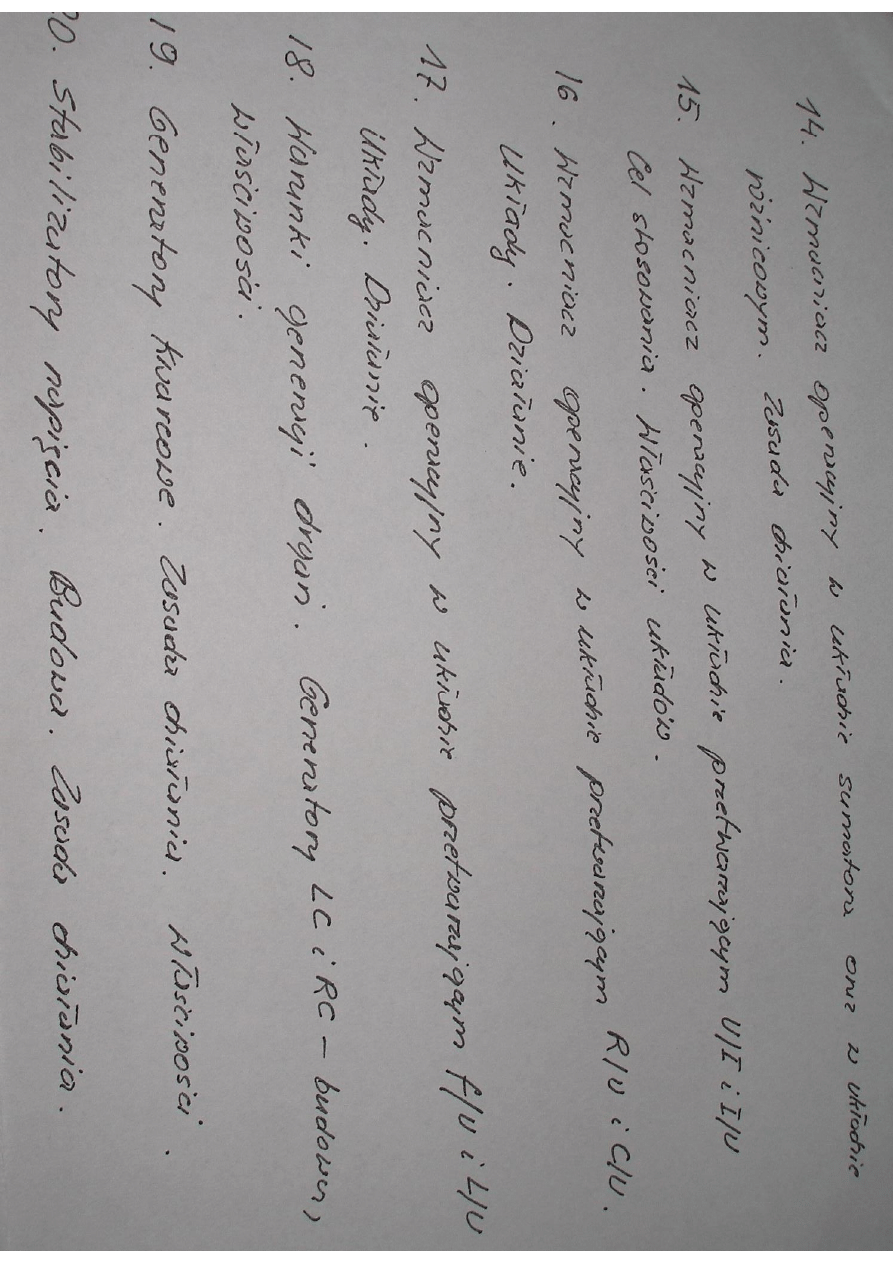 14. Wzmacniacz operacyjny w układzie sumatora oraz w układzie
różnicowym. Zasada działania.
15. Wzmacniacz operacyjny w układzie przetwarzającym U/I i I/U
Cel stosowania. Właściwości układów.
16. Wzmacniacz operacyjny w układzie przetwarzającym R/U i C/U.
Układy. Działanie.
17. Wzmacniacz operacyjny w układzie przetwarzającym f/U i L/U
Układy. Działanie.
18. Warunki generacji drgań. Generatory LC i RC – budowa,
właściwości.
19. Generatory kwarcowe. Zasada działania. Właściwości.
20. Stabilizatory napięcia. Budowa. Zasada działania.